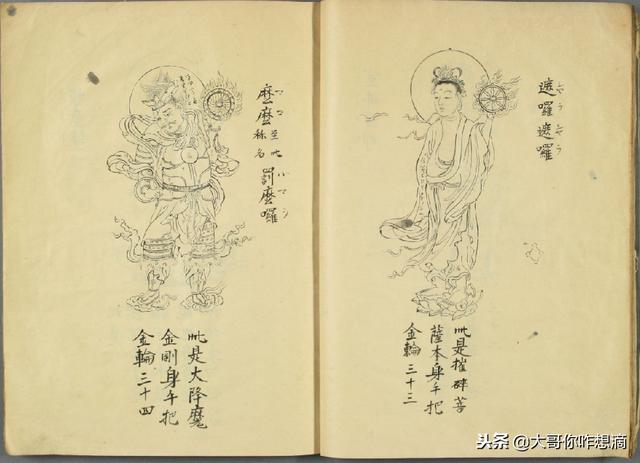 遮囉遮囉
此是摧碎菩
薩本身手把
金輪三十三
麼麼
至此
称名
罰麼囉
此是大降魔
金剛身手把
金輪三十四
头条 @大哥你咋想滴